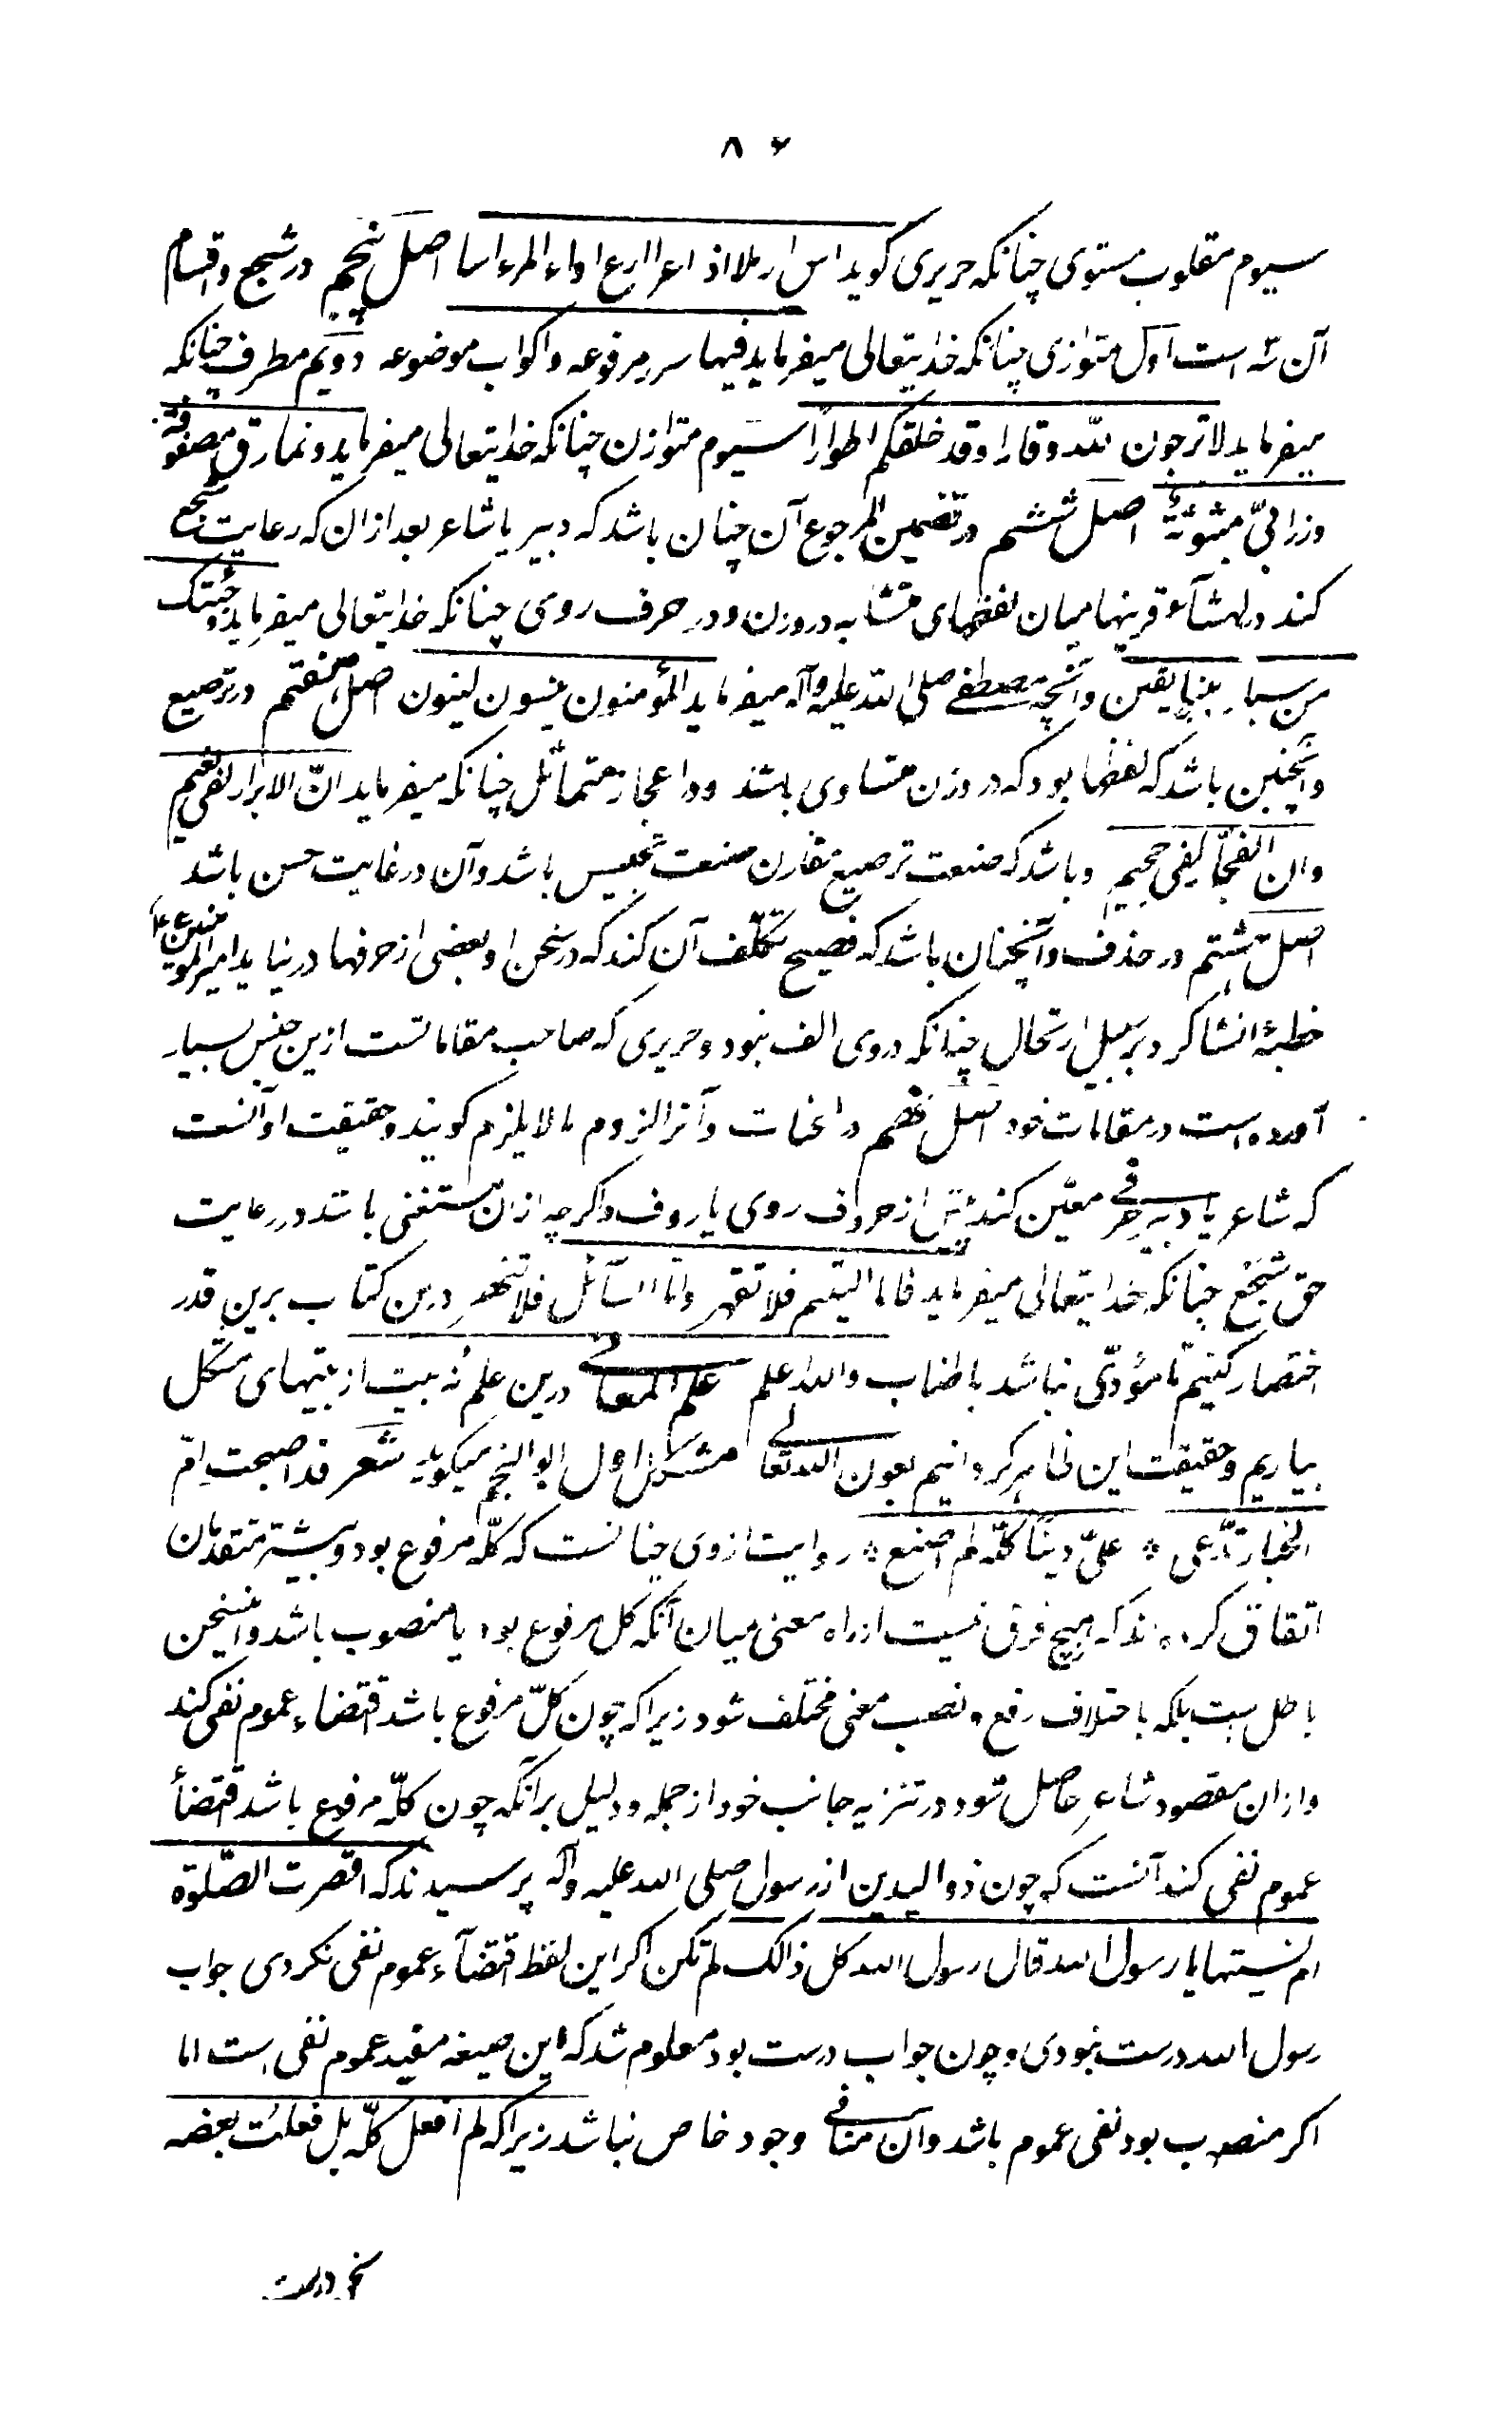 ۸۲
سیوم مقلوب مستوی چنانکه حریری کوید اس ارملا اذا عرا وارع اذا المرء اسا اصل پنجم در سجع و اقسام
آن سه است اول متوازی چنانکه خدایتعالی میفرماید فیها سرر مرفوعه و اکواب موضوعه دویم مطرف چنانکه
میفرماید لا ترجون لله وقارا وقد خلقکم اطوارًا سیوم متوازن چنانکه خدایتعالی میفرماید و نمارق مصفوفة
وزرابیّ مبثوثةٌ اصل ششم در تضمین المرجوع آن چنان باشد که دبیر یا شاعر بعد از ان که رعایت سجع
کند در اثنآء قرینها میان لفظهای متشابه در وزن و در حرف روی چنانکه خدایتعالی میفرماید وجئتک
من سباءٍ بنباءٍ یقین و آنچه مصطفے صلی الله علیه وآله میفرماید المؤمنون هینون لینون اصل هفتم در ترصیع
و آنچنین باشد که لفظها بود که در وزن متساوی باشند و در اعجاز متماثل چنانکه میفرماید انّ الابرار لفی نعیم
وان الفجّار لفی جحیم و باشد که صنعت ترصیع مقارن صنعت تجنیس باشد و آن در غایت حسن باشد
اصل هشتم در حذف و آنچنان باشد که فصیح تکلّف آن کند که در سخن او بعضی از حرفها در نیاید امیرالمؤمنین ع
خطبهٔ انشا کرد بر سبیل ارتحال چنانکه در وی الف نبود و حریری که صاحب مقاماتست ازین جنس بسیار
آورده است در مقامات خود اصل نهم در اعنات و آنرا لزوم ما لا یلزم کویند و حقیقت او آنست
که شاعر یا دبیر حرفے معیّن کند پیش از حروف روی یا ردف و اکرچه از ان مستغنی باشد در رعایت
حق سجع چنانکه خدایتعالی میفرماید فاما الیتیم فلا تقهر وامّا السآئل فلا تنهر درین کتاب برین قدر
اختصار کنیم تا مؤدّی نباشد باطناب والله اعلم علم المعانے درین علم نُه بیت از بیتهای مشکل
بیاریم و حقیقت این ظاهر کردانیم بعون الله تعالے مشکل اول ابو النجم میکوید شعر قد اصبحت امّ
الخیار تدّعی * علیّ ذنبًا کلّه لم اصنع * روایت از وی چنانست که کلّه مرفوع بود و بیشتر متقدمان
اتفاق کرده‌اند که هیچ فرق نیست از راه معنی میان آنکه کل مرفوع بود یا منصوب باشد و این سخن
باطل است بلکه باختلاف رفع و نصب معنی مختلف شود زیرا که چون کلّ مرفوع باشد اقتضاء عموم نفی کند
و از ان مقصود شاعر حاصل شود در تنزیه جانب خود از جمله و دلیل بر آنکه چون کلّه مرفوع باشد اقتضأ
عموم نفی کند آنست که چون ذوالیدین از رسول صلی الله علیه وآله پرسیدند که اقصرت الصّلوة
ام نسیتها یا رسول الله قال رسول الله کل ذالک لم تکن اکر این لفظ اقتضآء عموم نفی نکردی جواب
رسول الله درست نبودی و چون جواب درست بود معلوم شد که این صیغه مفید عموم نفی است اما
اکر منصوب بود نفی عموم باشد و ان منافے وجود خاص نباشد زیرا که لم افعل کلّه بل فعلتُ بعضه